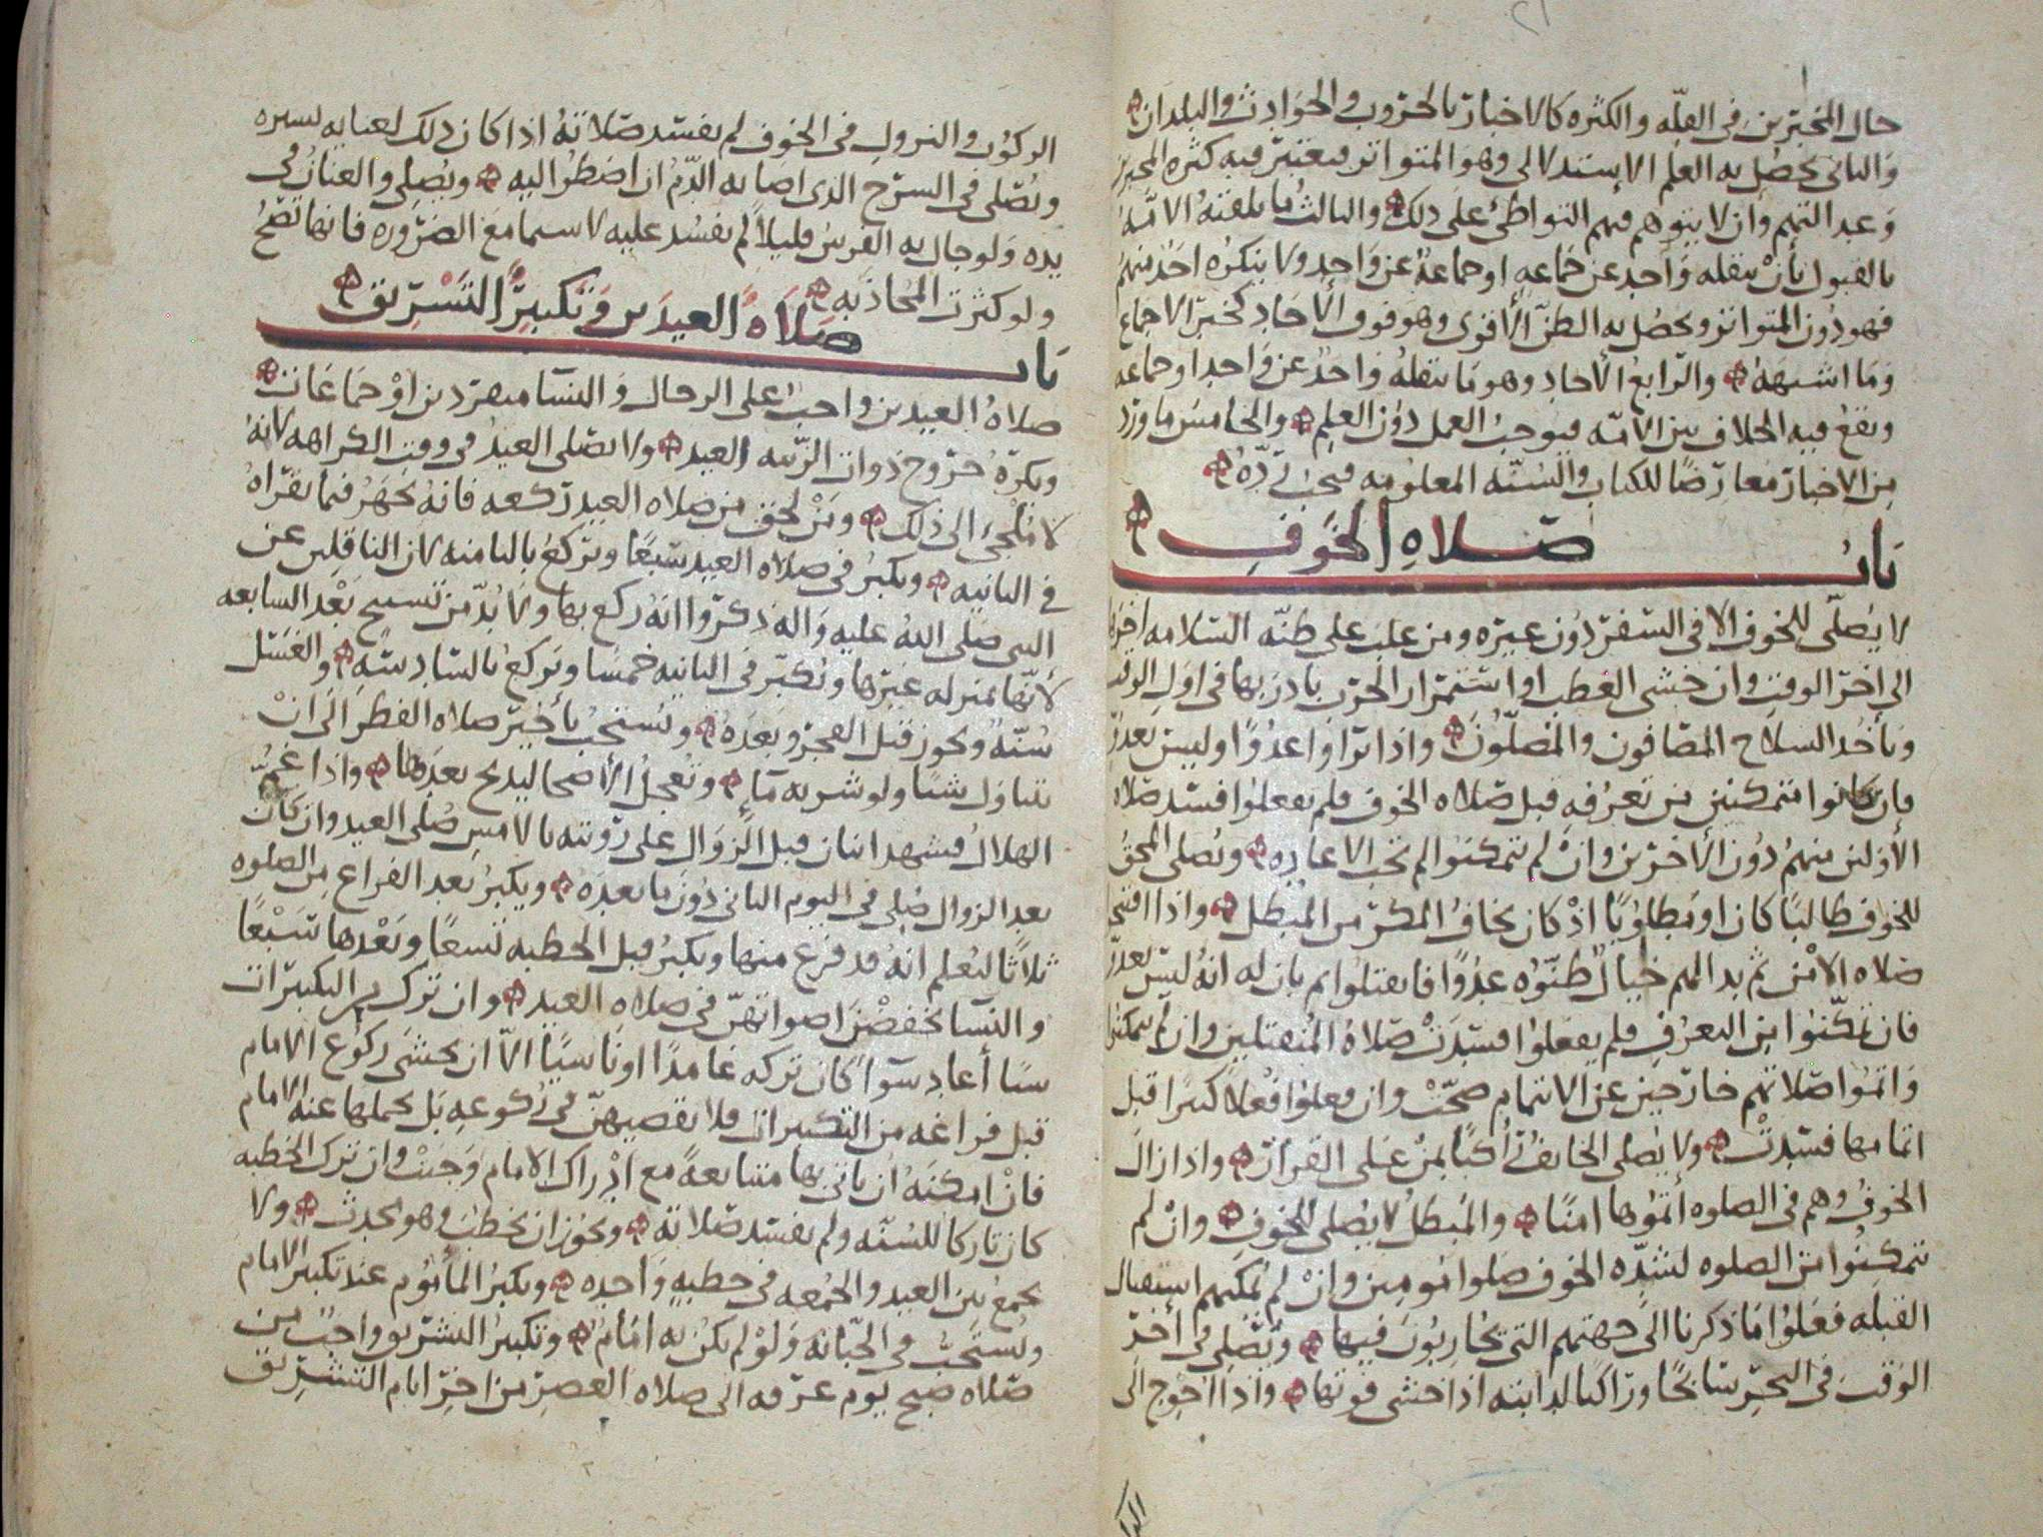 حال المخبرين في القله والكثره كالاخبار بالحروب والحوادث والبلدان
والثاني يحصل به العلم الاستدلالي وهو المتواتر فيعتبر فيه كثره المخبرين
وعدالتهم وان لا يتوهم فيهم التواطئ على ذلك والثالث ما تلقته الامّه
بالقبول بأن ينقله واحد عن جماعه او جماعة عن واحد ولا ينكره احد منهم
فهو دون المتواتر ويحصل به الظنّ الأقوى وهو فوق الأحاد كخبر الاجماع
وما اشبهه والرابع الأحاد وهو ما ينقله واحد عن واحد او جماعه
ويقع فيه الخلاف بين الامّه فيوجب العمل دون العلم والخامس ما ورد
من الاخبار معارضًا للكتاب والسنّه المعلومه فيجب ردّه
باب صلاه الخوف
لا يصلّى للخوف الا في السفر دون غيره ومن غلب على ظنّه السلامه اخرها
الى اخر الوقت وان خشي العطب او استمرار الحرب بادر بها في اول الوقت
ويأخذ السلاح المصافون والمصلّون واذا تراؤا عدوًا وليس بعدوّ
فان كانوا متمكنين من تعرفه قبل صلاه الخوف فلم يفعلوا فسد صلاه
الأولين منهم دون الأخرين وان لم يتمكنوا لم تجب الاعاده ويصلي المحق
للخوف طالبًا كان او مطلوبًا اذ كان يخاف المكر من المبطل واذا افتتحوا
صلاه الامن ثم بدا لهم خيال ظنّوه عدوًا فانفتلوا ثم بان له انه ليس بعدوّ
فان تمكّنوا من التعرف فلم يفعلوا فسدت صلاة المنفتلين وان لم يتمكنوا
واتموا صلاتهم خارجين عن الائتمام صحّت وان فعلوا فعلاً كثيرًا قبل
اتمامها فسدت ولا يصلي الخائف راكبًا بمن على القرار واذا زال
الخوف وهم في الصلوه أتموها امنًا والمبطل لا يصلي للخوف وان لم
يتمكنوا من الصلوه لشدّه الخوف صلوا مومين وان لم يمكنهم استقبال
القبله فعلوا ما ذكرنا الى جهتهم التي يحاربون فيها ويصلي في أخر
الوقت في البحر سابحًا وراكبًا لدابته اذا خشي فوتها واذا احوج الى
الركوب والنزول في الخوف لم يفسد صلاته اذا كان ذلك لعنايه يسيره
ويصلى في السرج الذي اصابه الدّم ان اضطر اليه ويصلي والعنان في
يده ولو جال به الفرس قليلاً لم يفسد عليه لا سيما مع الضروره فانها تصحّ
ولو كثرت المجاذبه
باب صلاة العيدين وتكبير التشريق
صلاة العيدين واجب على الرجال والنسا منفردين او جماعات
ويكره خروج ذوات الزينه للعيد ولا يصلى العيد في وقت الكراهه لانه
لا ملجئ الى ذلك ومن لحق من صلاه العيد ركعه فانه يجهر فيما يقراه
في الثانيه ويكبر في صلاه العيد سبعًا ويركع بالثامنه لان الناقلين عن
النبي صلى الله عليه واله ذكروا انه ركع بها ولا بدّ من تسبيح بعد السابعه
لانّها بمنزله غيرها ويكبّر في الثانيه خمسا ويركع بالسادسه والغسل
سنّة ويجوز قبل الفجر وبعده ويستحب تأخير صلاه الفطر الى ان
يتناول شيئا ولو شربه ماء وتعجل الأضحا ليذبح بعدها واذا غمّ
الهلال فشهد اثنان قبل الزوال على رؤيته بالامس صلى العيد وان كان
بعد الزوال صلى في اليوم الثاني دون ما بعده ويكبر بعد الفراغ من الصلوه
ثلاثًا ليعلم انه قد فرغ منها ويكبر قبل الخطبه تسعًا وبعدها سبعًا
والنسا يخفضن اصواتهنّ في صلاه العيد وان ترك من التكبيرات
شيئًا أعاد سواً كان تركه عامدًا او ناسيًا الاّ ان يخشى ركوع الامام
قبل فراغه من التكبيرات فلا يقضيهنّ في ركوعه بل يحملها عنه الامام
فان امكنه ان ياتي بها متتابعةً مع ادراك الامام وجبت وان ترك الخطبه
كان تاركا للسنّه ولم يفسد صلاته ويجوز ان يخطب وهو محدث ولا
يجمع بين العيد والجمعه في خطبه واحده ويكبر المأموم عند تكبير الامام
ويستحب في الجبّانه ولو لم يكن به امام وتكبير التشريق واجب من
صلاه صبح يوم عرفه الى صلاه العصر من اخر ايام التشريق